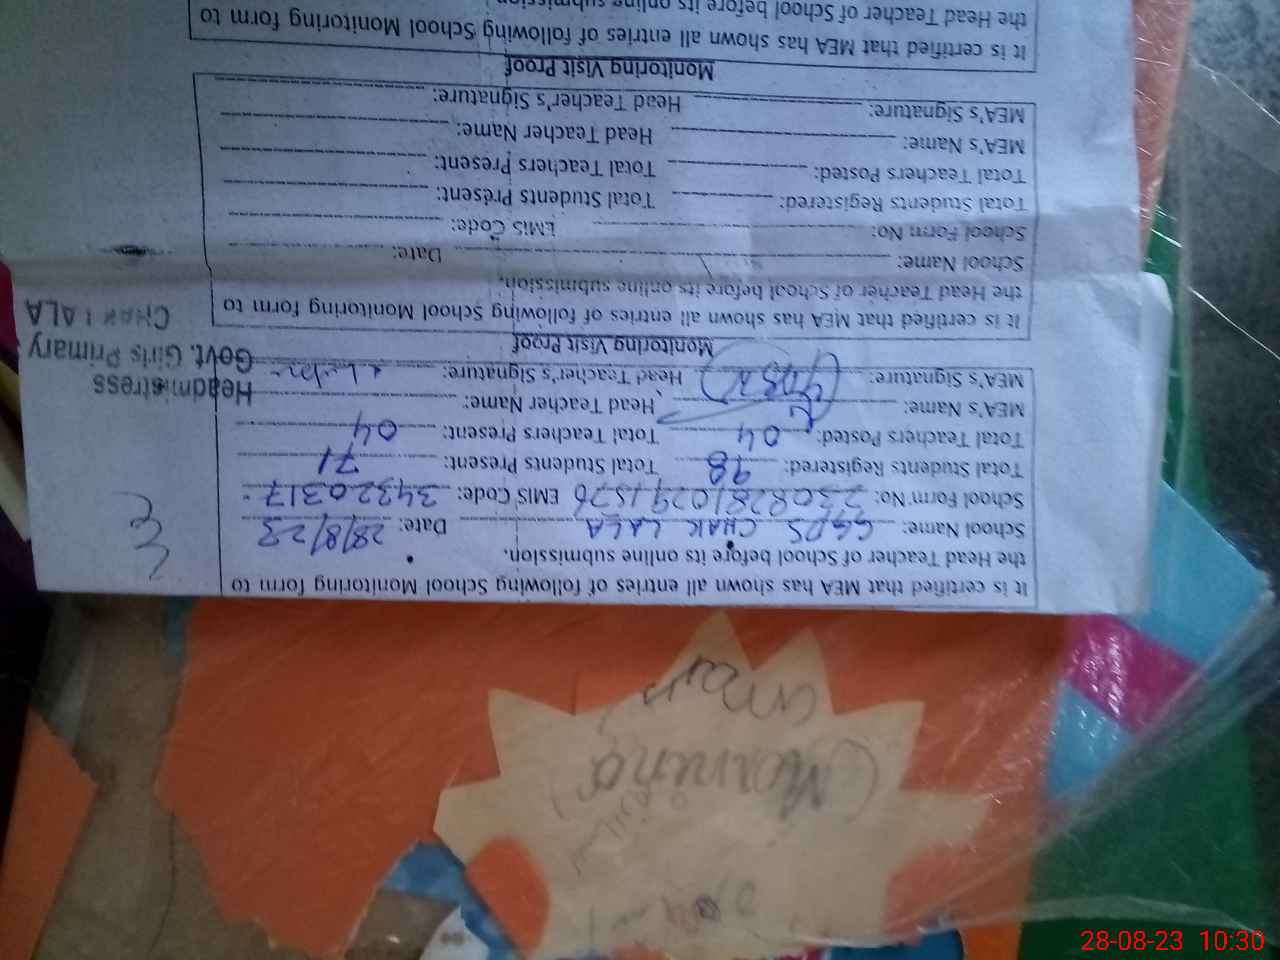 Morning
It is certified that MEA has shown all entries of following School Monitoring School form to
the Head Teacher of School before its online submission.
School Name: GGPS CHAK LALA Date: 28/8/23
School Form No: EMIS Code: 34320317
Total Students Registered: 98 Total Students Present: 71
Total Teachers Posted: 04 Total Teachers Present: 04
MEA's Name: Head Teacher Name:
MEA's Signature: Head Teacher's Signature:
Headmistress
Govt. Girls Primary
CHAK LALA
Monitoring Visit Proof
It is certified that MEA has shown all entries of following School Monitoring School form to
the Head Teacher of School before its online submission.
School Name: Date:
School Form No: EMIS Code:
Total Students Registered: Total Students Present:
Total Teachers Posted: Total Teachers Present:
MEA's Name: Head Teacher Name:
MEA's Signature: Head Teacher's Signature:
Monitoring Visit Proof
It is certified that MEA has shown all entries of following School Monitoring School form to
the Head Teacher of School before its online submission.
28-08-23 10:30